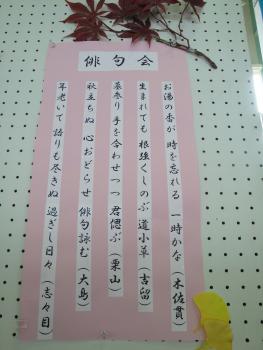 俳句会
お湯の香が 時を忘れる 一時かな (木佐貫)
生まれても 根強くしのぶ 道小草 (吉留)
墓参り 手を合わせつつ 君偲ぶ (栗山)
秋立ちぬ 心おどらせ 俳句詠む (大鳥)
年老いて 語りも尽きぬ 過ぎし日々 (志々目)